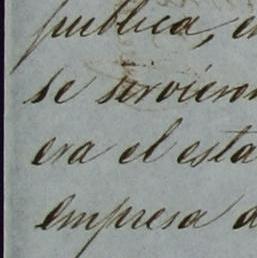 publica, e
se sirvieron
era el esta
empresa d